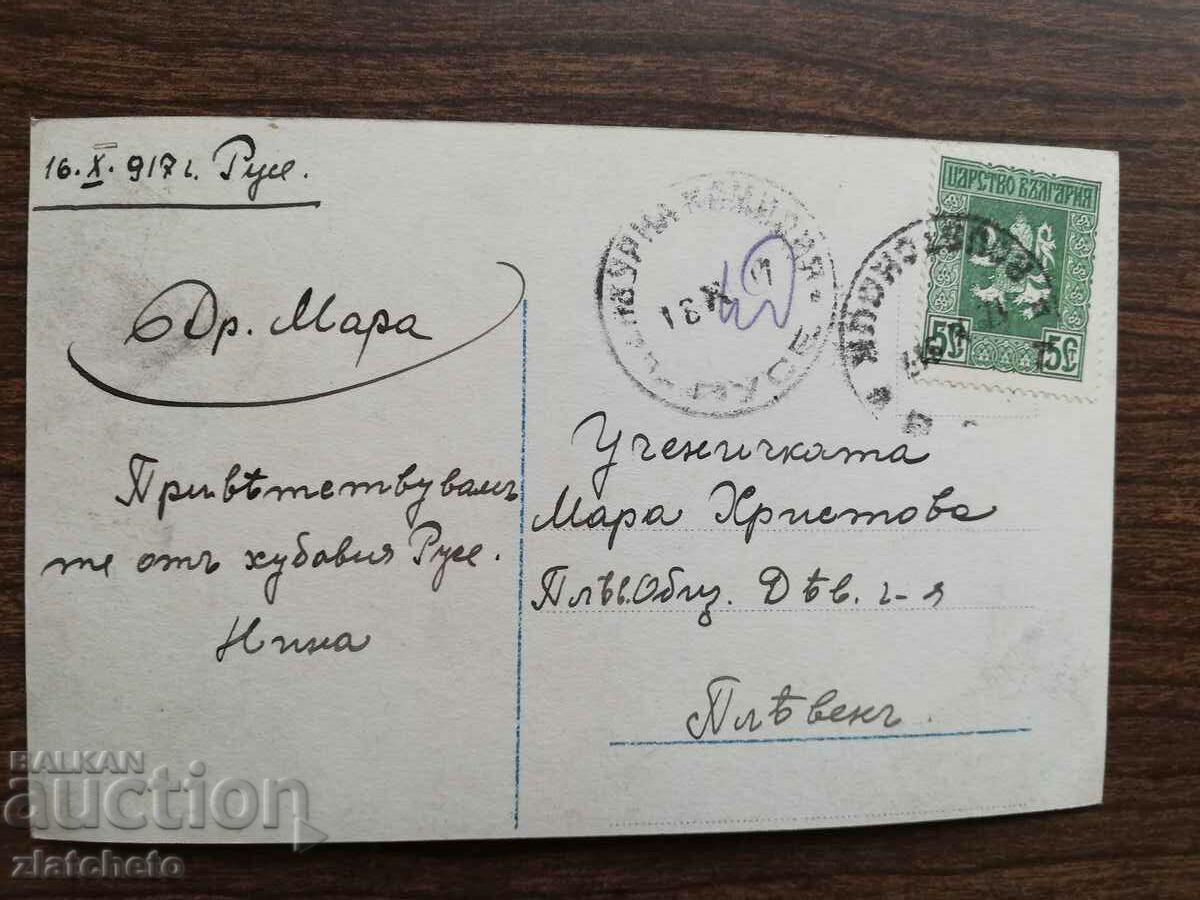 16.X.917 г. Русе.
Др. Мара
Привѣтствувамъ
те отъ хубавия Русе.
Нина
ЦАРСТВО БЪЛГАРИЯ
5 5
ЦЕНЗУРНА КОМИСИЯ
РУСЕ
Ученичката
Мара Христова
Плѣв. Общ. Дѣв. г-я
Плѣвенъ.
BALKAN
auction
zlatcheto